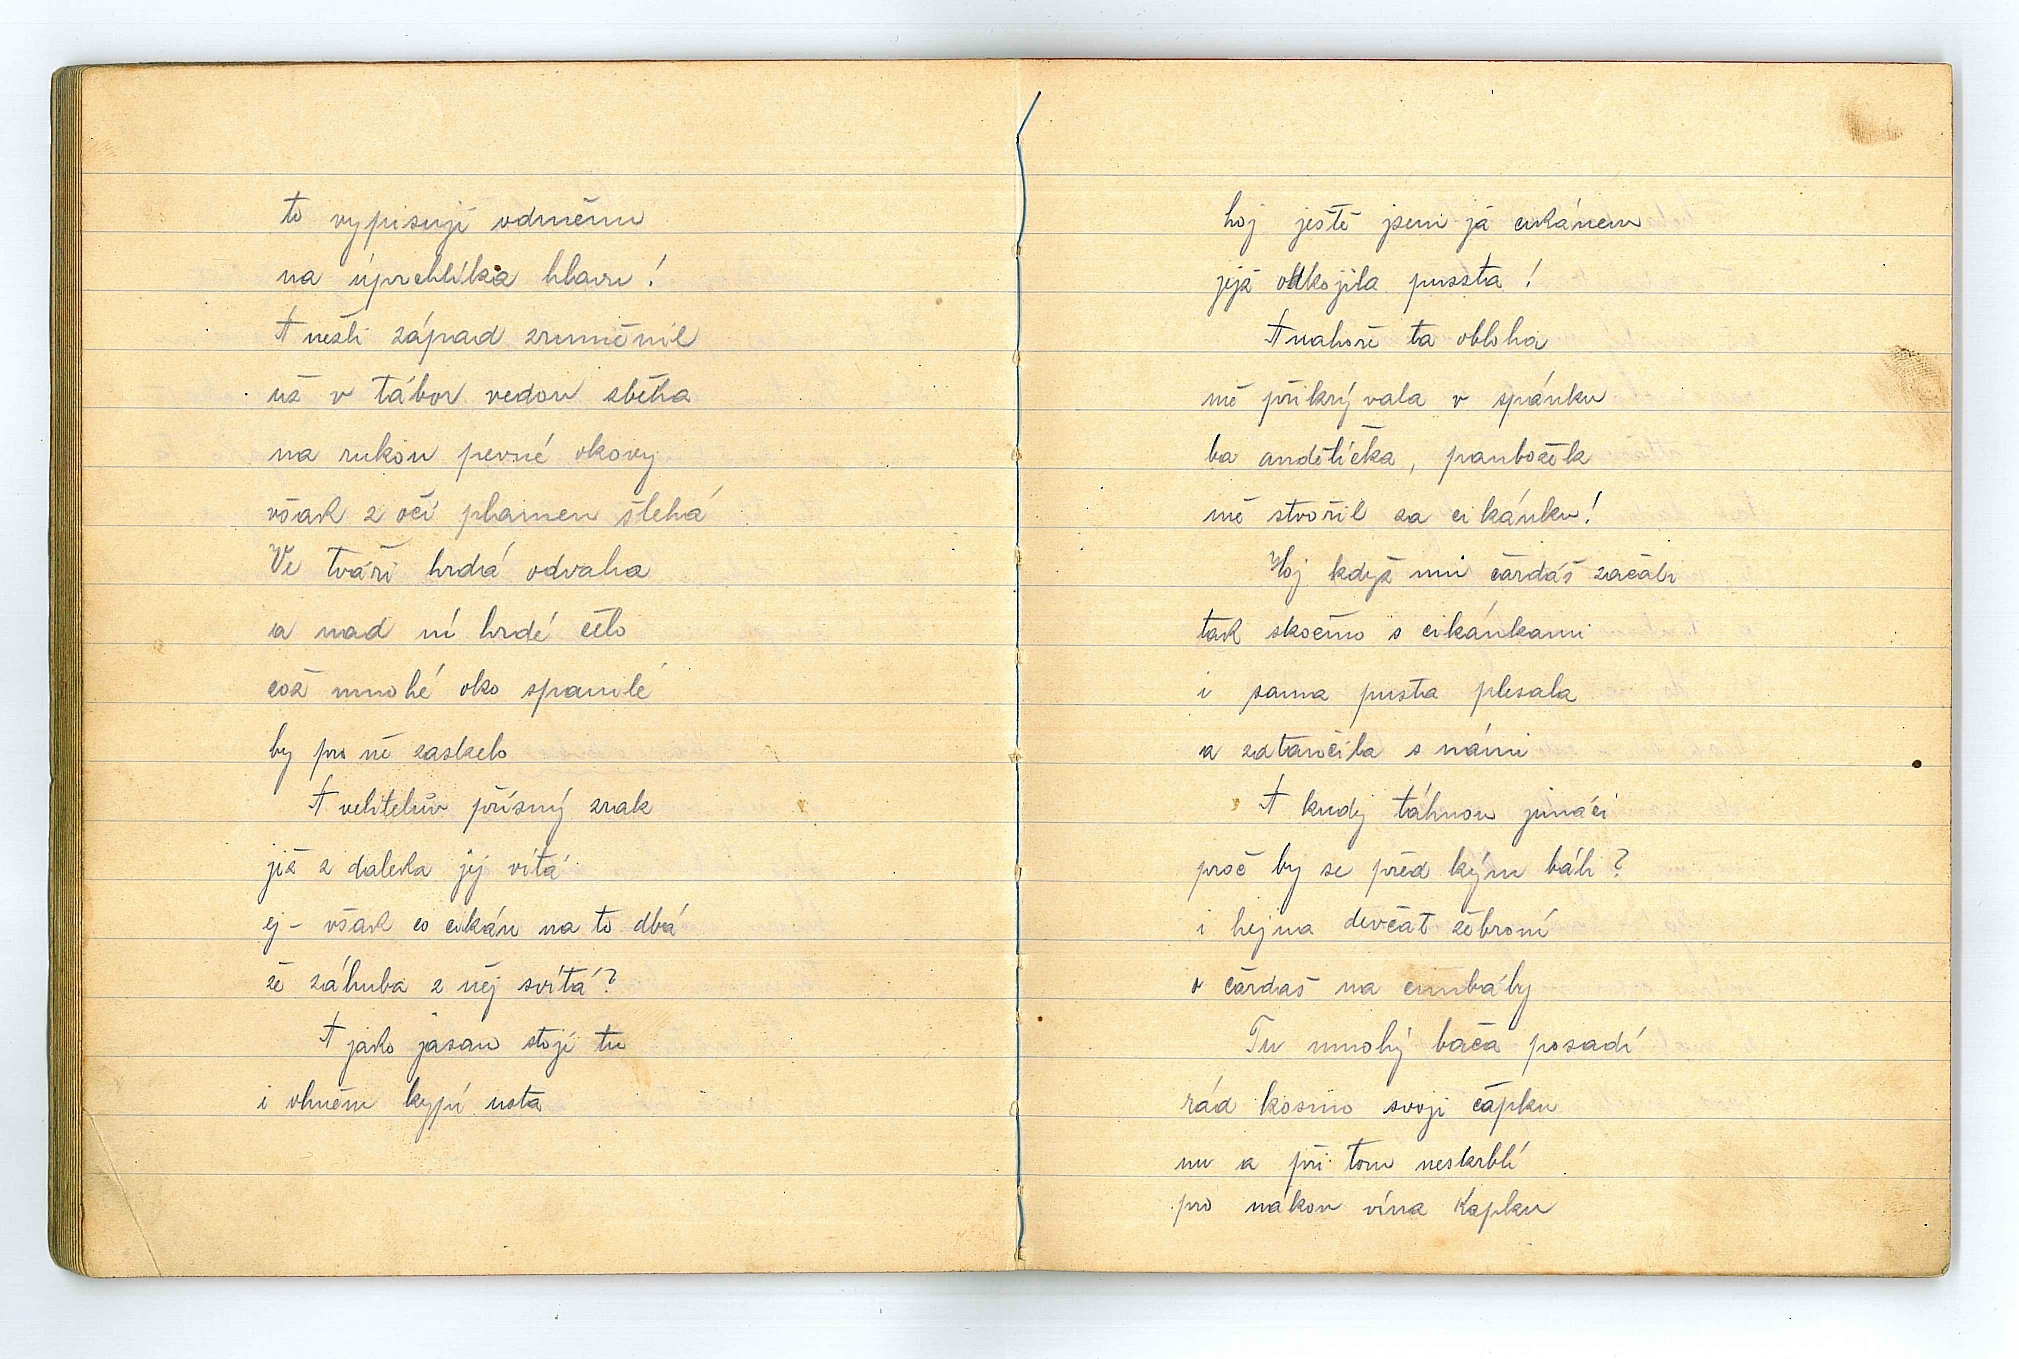 to vypisují odměnu
na úprchlíka hlavu!
A nežli západ zruměnil
už v tábor vedou zběha
na rukou pevné okovy
však z očí plamen šlehá
Ve tváři hrdá odvaha
a nad ní hrdé čelo
což mnohé oko spanilé
by pro ně zaslzelo
A velitelův přísný zrak
již z daleka jej vítá
ej - však co cikán na to dbá
že záhuba z něj svítá?
A jako jasan stojí tu
i ohněm kypí usta
hoj ještě jsem já cikánem
jejž odkojila pussta!
A nahoře ta obloha
mě přikrývala v spánku
ba andělíčka, panbožek
mě stvořil za cikánku!
Hoj když mi čardáš začali
tak skočmo s cikánkami
i sama pusta plesala
a zatančila s námi
A kudy táhnou junáci
proč by se před kým báli?
i hejna devčat žebroní
o čardaš na cimbály
Tu mnohý bača posadí
rád kosmo svoji čápku
nu a při tom neskrblí
pro nákou vína kapku